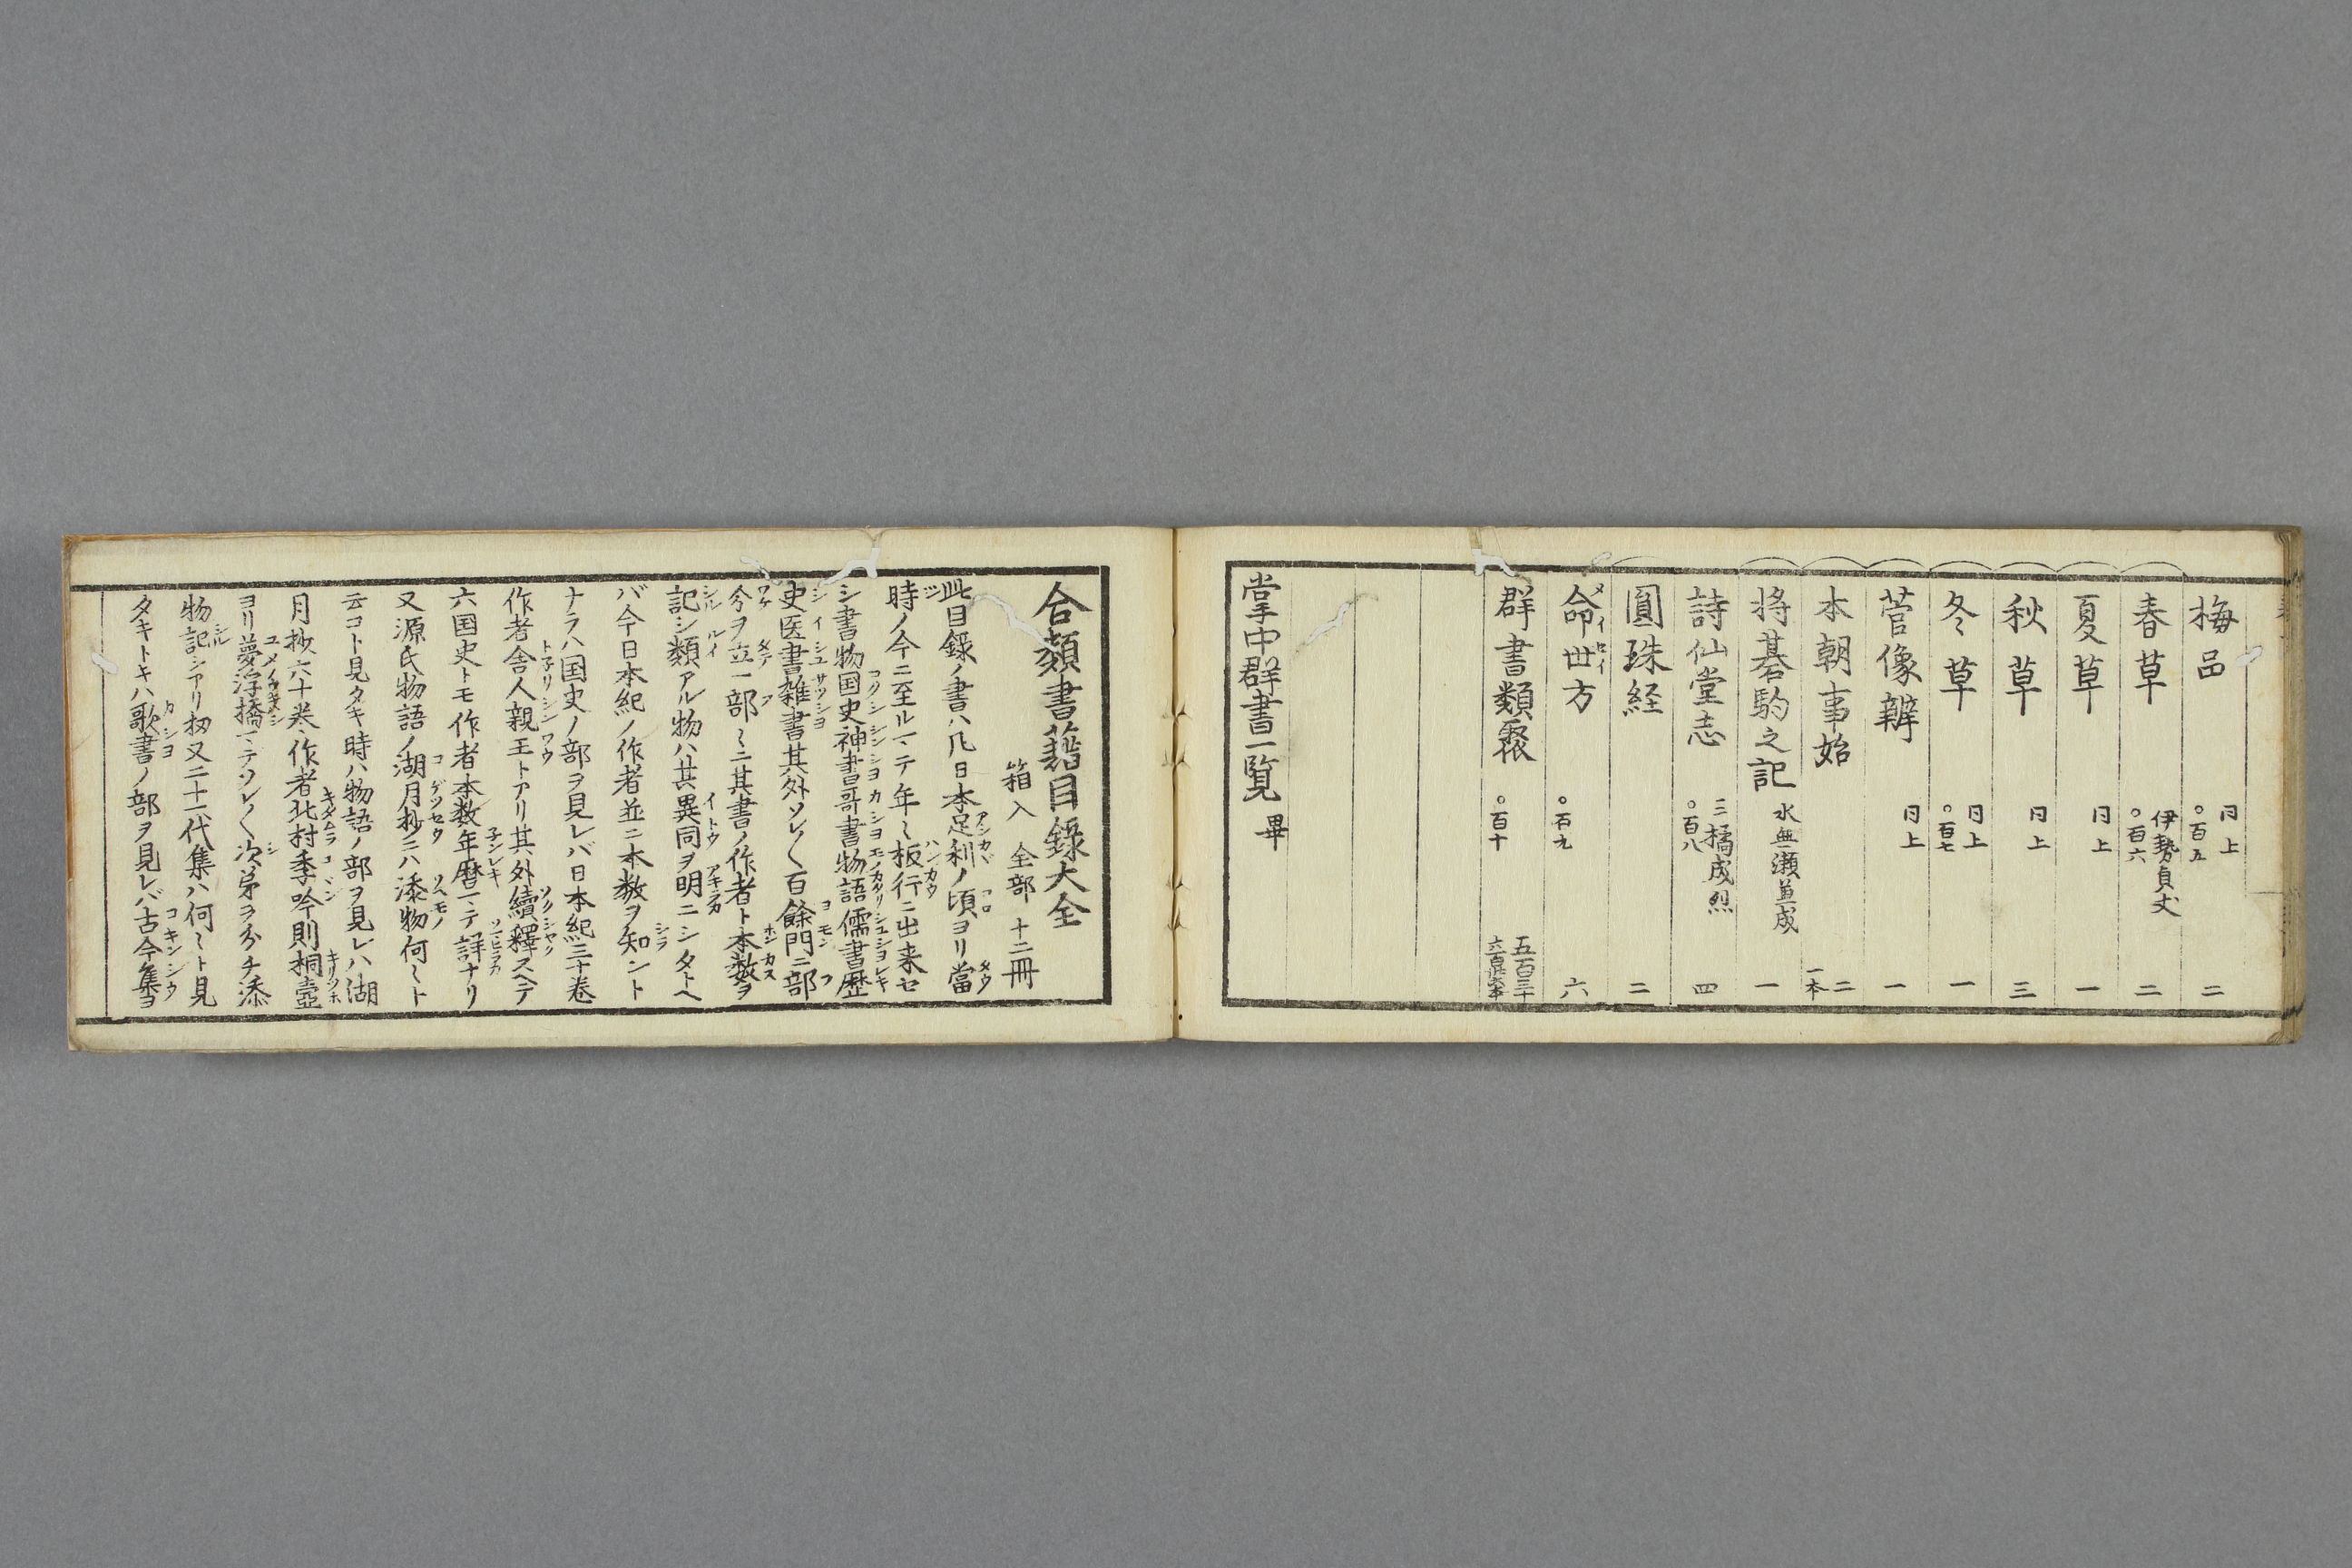 梅邑 同上 ○百五 二
春草 伊勢貞丈 ○百六 二
夏草 同上 一
秋草 同上 三
冬草 同上 ○百七 一
菅像辨 同上 一
本朝事始 二 一本
将碁駒之記 水無瀬兼成 一
詩仙堂志 三橘成烈 ○百八 四
圓珠経 二
命世方 ○百九 六
群書類聚 ○百十 五百三十
掌中群書一覧 畢
合類書籍目錄大全
箱入 全部 十二冊
此目錄ノ書ハ凡日本足利ノ頃ヨリ當
時ノ今ニ至ルマテ年〻板行ニ出来セ
シ書物国史神書哥書物語儒書歴
史医書雑書其外ソレ〱百餘門ニ部
分ヲ立一部〻ニ其書ノ作者ト本数ヲ
記シ類アル物ハ其異同ヲ明ニシタトヘ
バ今日本紀ノ作者並ニ本数ヲ知ント
ナラハ国史ノ部ヲ見レバ日本紀三十巻
作者舎人親王トアリ其外續釋スヘテ
六国史トモ作者本数年暦マテ詳ナリ
又源氏物語ノ湖月抄ニハ添物何〻ト
云コト見タキ時ハ物語ノ部ヲ見レハ湖
月抄六十巻作者北村季吟則桐壺
ヨリ夢浮橋マテソレ〱次第ヲ分チ添
物記シアリ扨又二十一代集ハ何〻ト見
タキトキハ歌書ノ部ヲ見レバ古今集ヨ